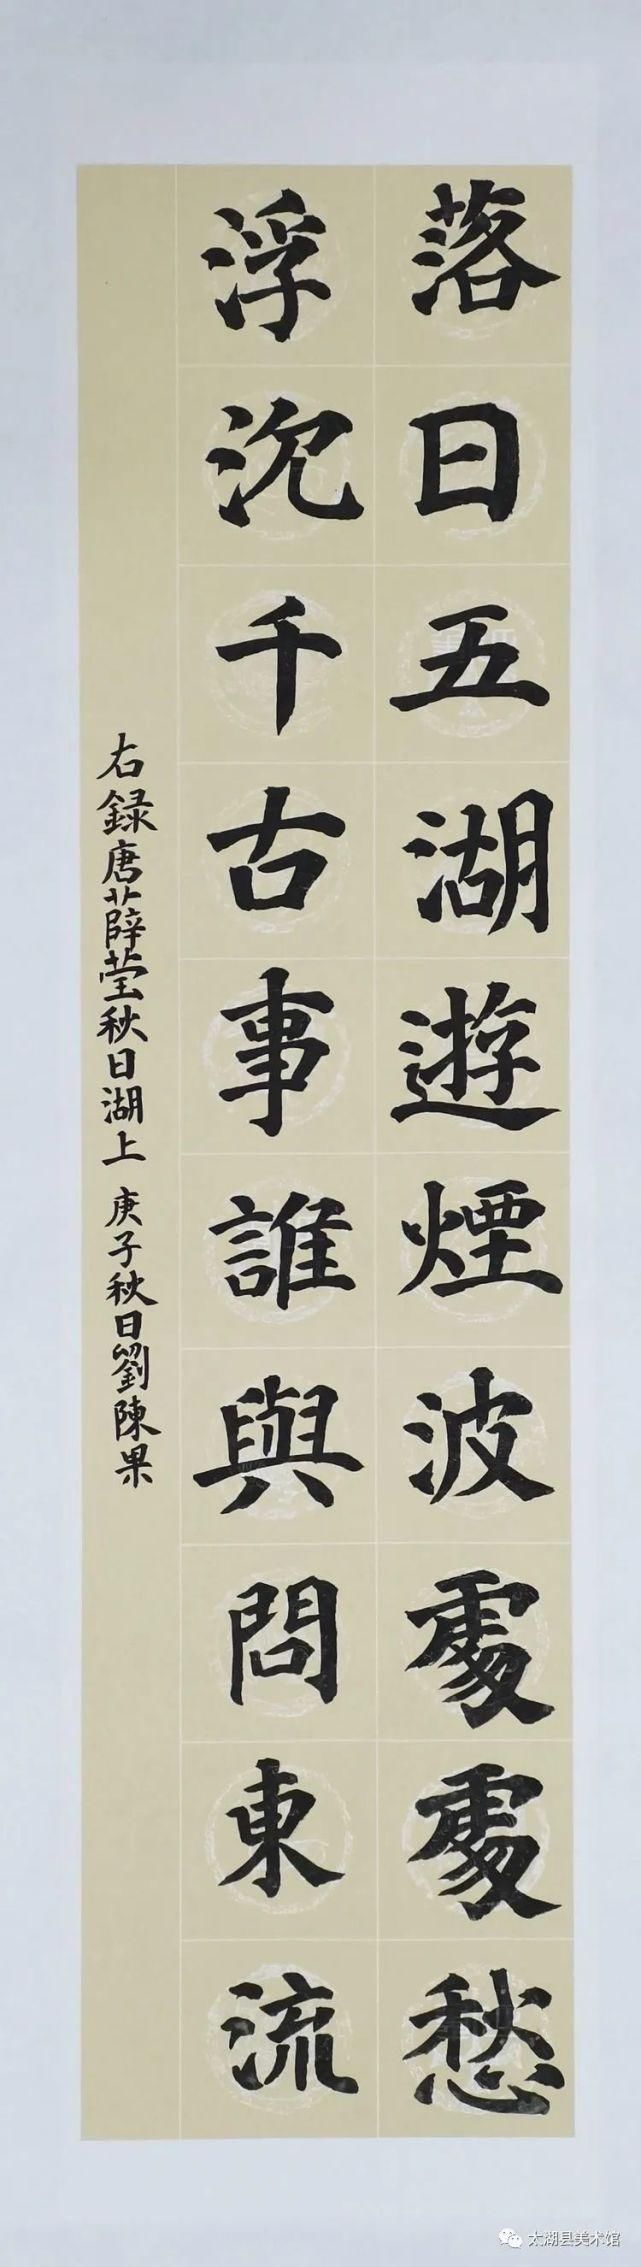 落日五湖遊煙波處處愁
浮沉千古事誰與問東流
右録唐薛莹秋日湖上 庚子秋日劉陳果
太湖县美术馆